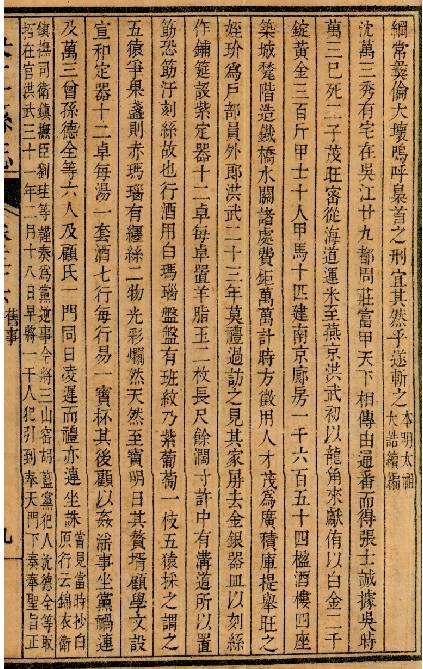 綱常彝倫大壞嗚呼梟首之刑宜其然乎遂斬之本明太祖
大誥續編
沈萬三秀有宅在吳江廿九都周莊富甲天下相傳由通番而得張士誠據吳時
萬三已死二子茂旺密從海道運米至燕京洪武初以龍角來獻侑以白金二千
錠黃金三百斤甲士十人甲馬十匹建南京廊房一千六百五十四楹酒樓四座
築城甃階造鐵橋水關諸處費鉅萬萬計時方徵用人才茂爲廣積庫提舉旺之
姪玠爲戶部員外郎洪武二十三年莫禮過訪之見其家屏去金銀器皿以刻絲
作鋪筵設紫定器十二卓每卓置羊脂玉二枚長尺餘濶寸許中有溝道所以置
筯恐筯汙刻絲故也行酒用白瑪瑙盤盤有班紋乃紫葡萄一枝五猿採之謂之
五猿爭果盞則赤瑪瑙有纏絲二物光彩爛然天然至寶明日其贅壻顧學文設
宣和定器十二卓每湯一套酒七行每行易一寶杯其後顧以姦淫事坐黨禍連
及萬三曾孫德全等六人及顧氏一門同日凌遲而禮亦連坐誅曾見當時抄白
原行云錦衣衛
鎮撫司衛鎮撫臣劉珪等謹奏爲黨逆事今將三山窩胡藍黨犯人沈德全等取
招在官洪武三十一年二月十八日早將一干人犯引到奉天門下奏奉聖旨正
舊事
九